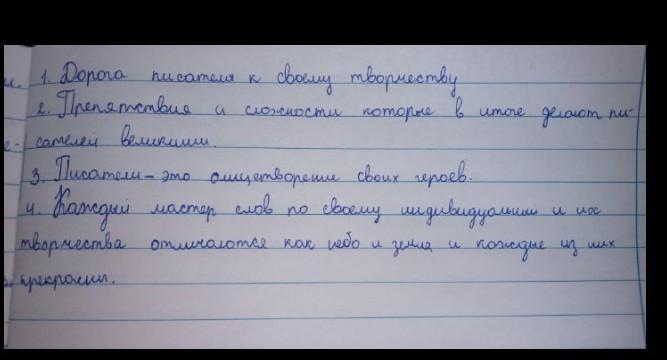 1. Дорога писателя к своему творчеству
2. Препятствия и сложности которые в итоге делают пи-
сателей великими.
3. Писатели - это олицетворение своих героев.
4. Каждый мастер слов по своему индивидуальный и их
творчества отличаются как небо и земля и каждые из них
прекрасны.